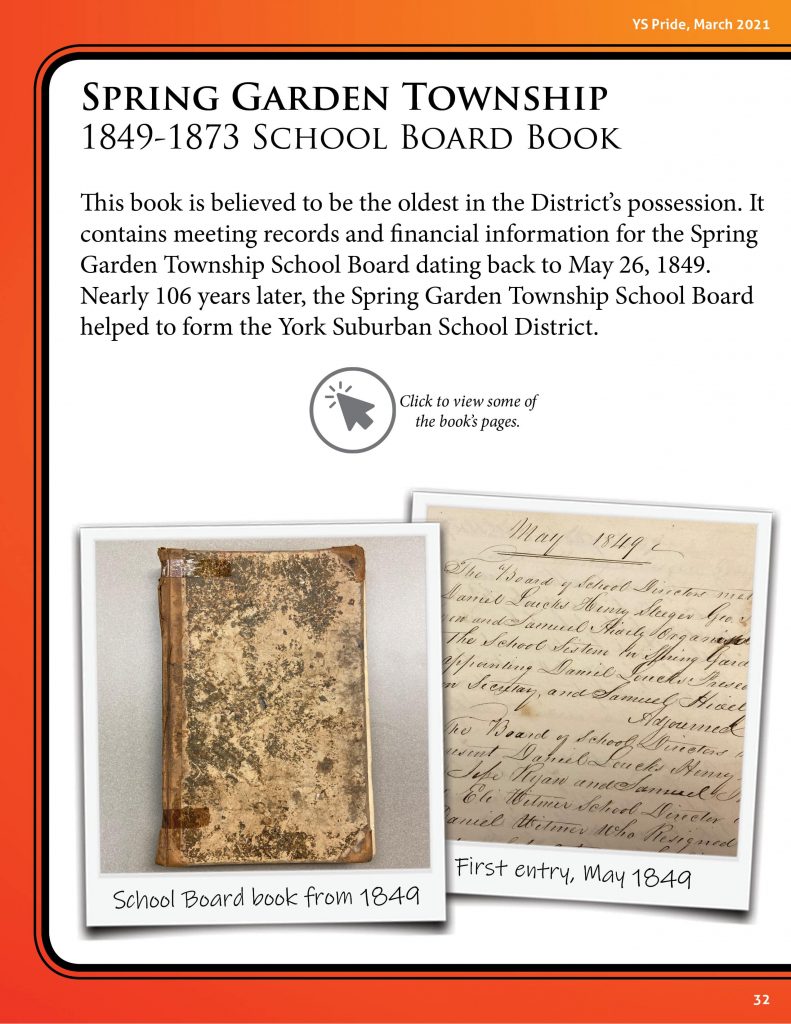 YS Pride, March 2021
SPRING GARDEN TOWNSHIP
1849-1873 SCHOOL BOARD BOOK
This book is believed to be the oldest in the District’s possession. It
contains meeting records and financial information for the Spring
Garden Township School Board dating back to May 26, 1849.
Nearly 106 years later, the Spring Garden Township School Board
helped to form the York Suburban School District.
Click to view some of
the book’s pages.
May 1849
The Board of School Directors met
Daniel Loucks Henry Geo.
and Samuel Hively
the School Sistem in Spring Gard
appointing Daniel Loucks Presed
Secretay, and Samuel Hivel
Adjourned
The Board of School Directors
Daniel Loucks Henry
Ryan and Samuel
Eli Witmer School Director
Daniel Witmer Who Resigned
School Board book from 1849
First entry, May 1849
32